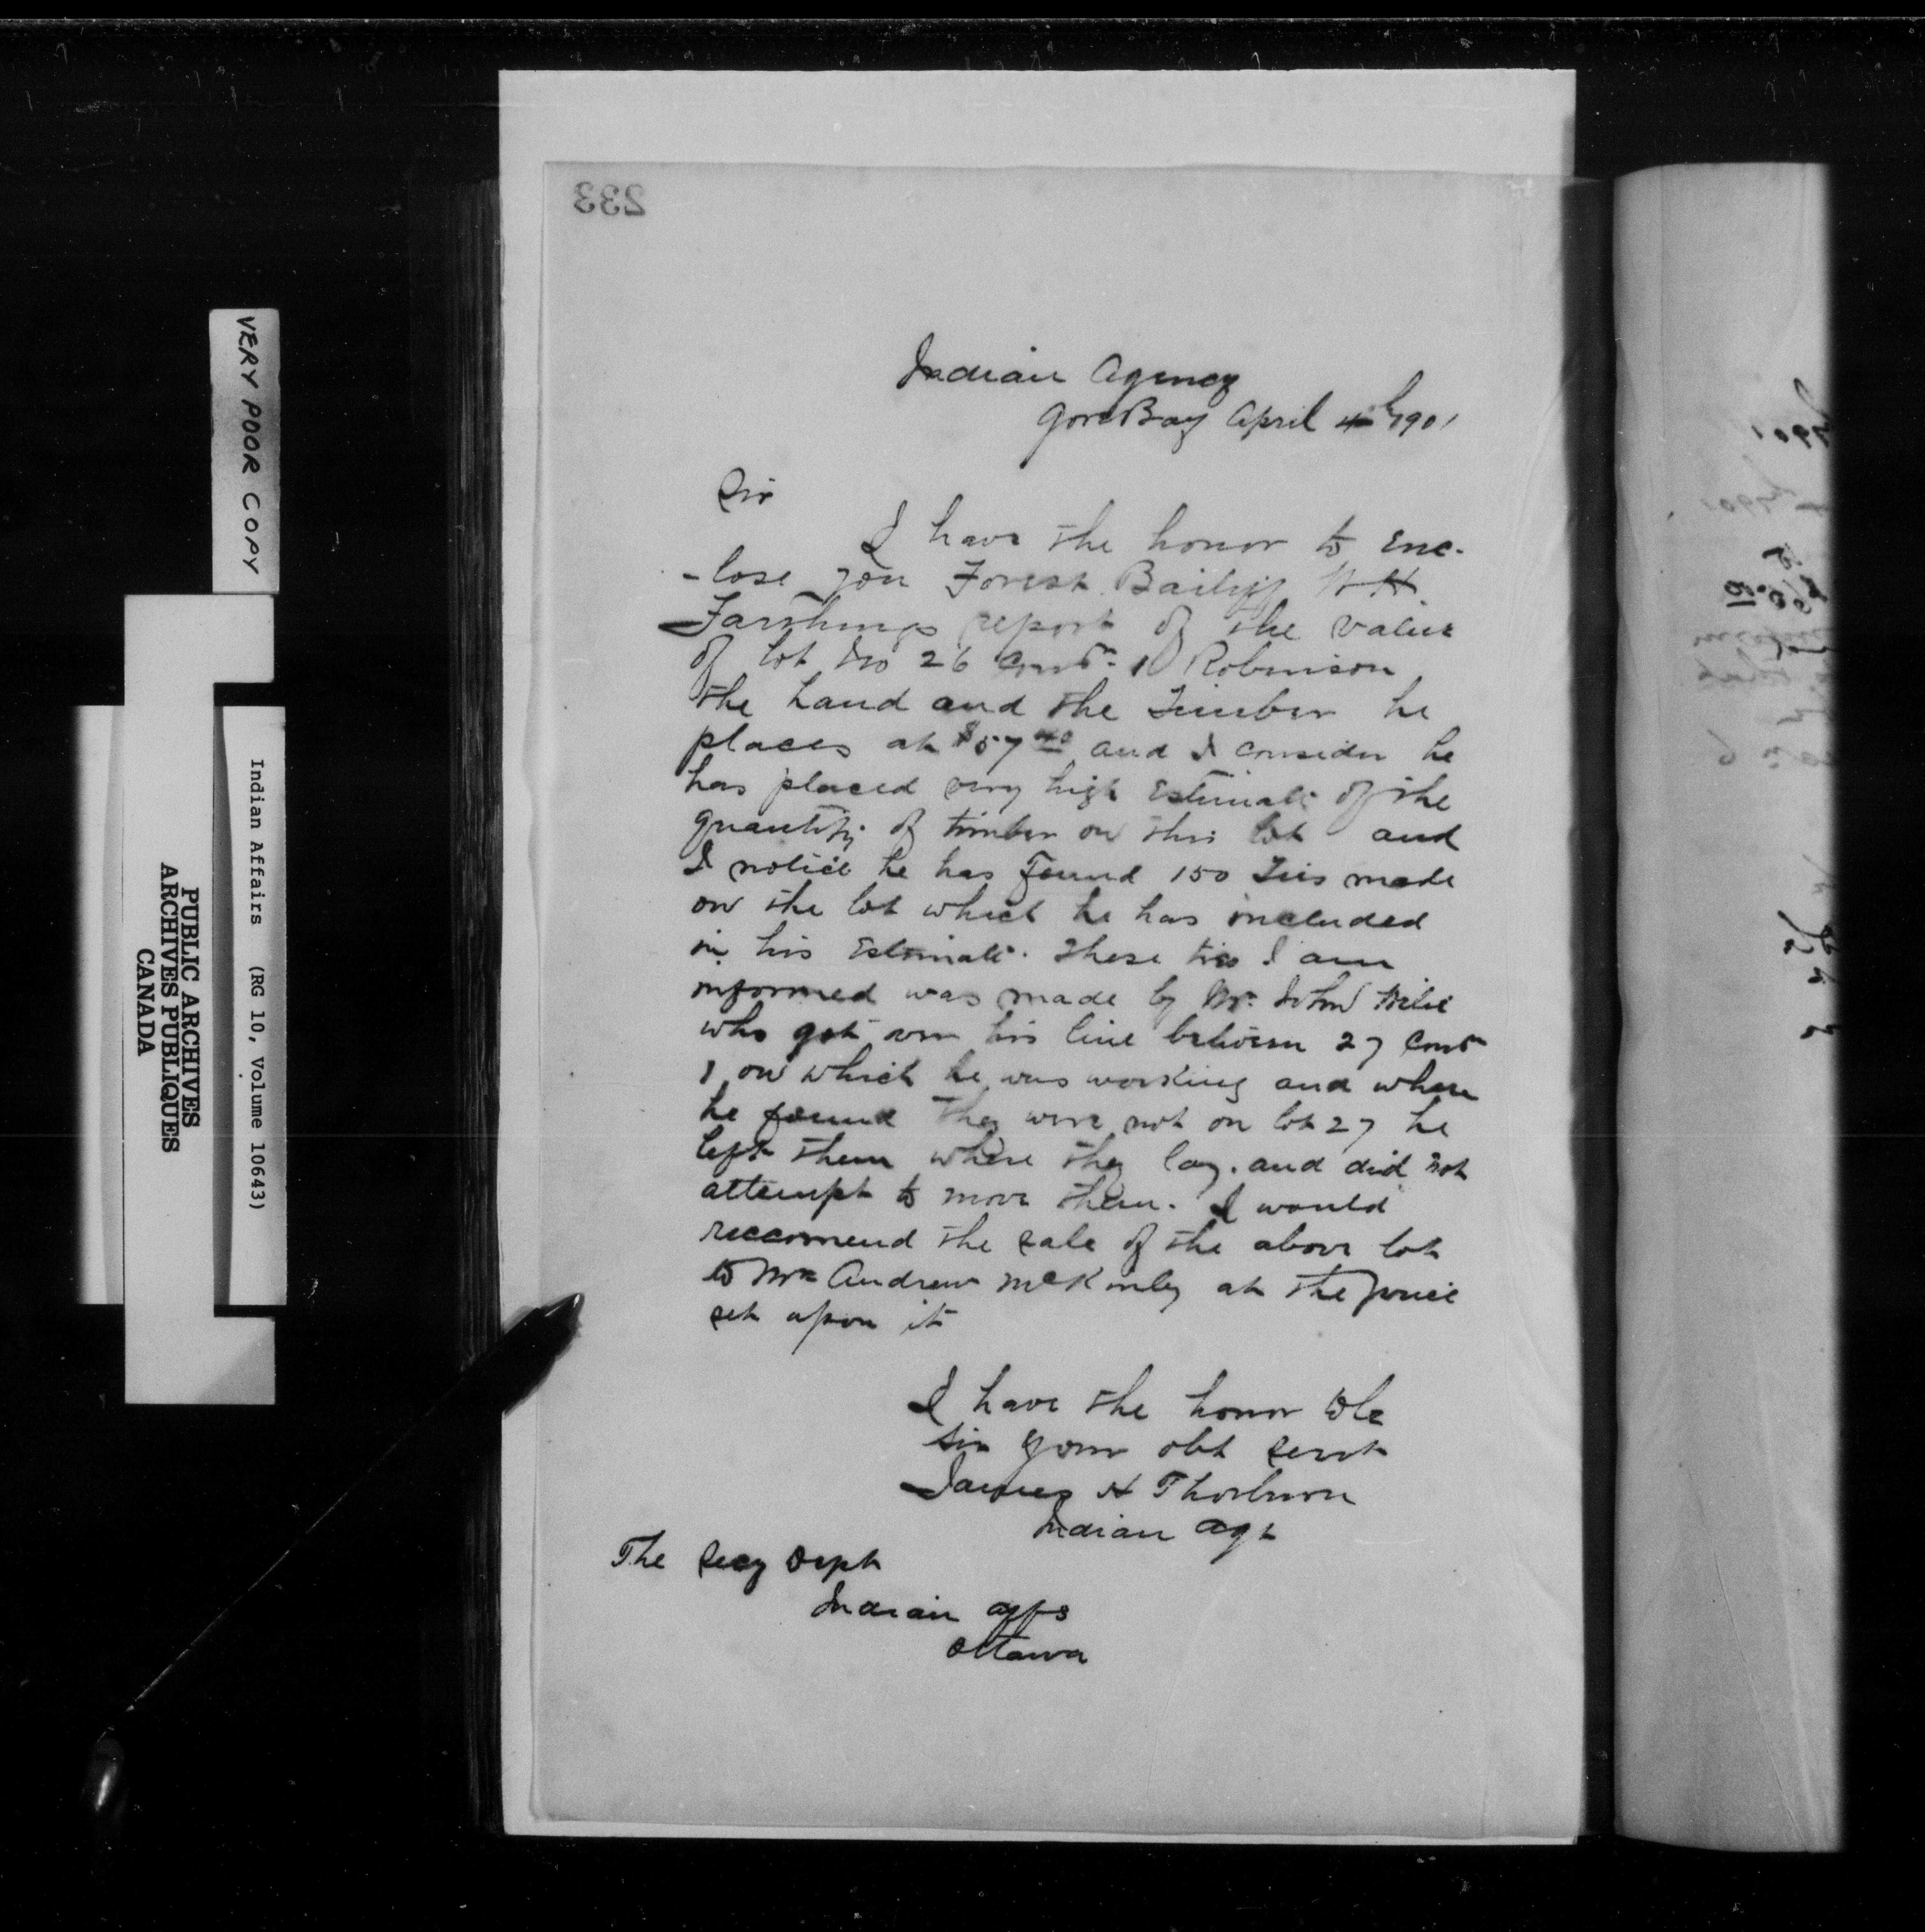 233
Indian Agency
Gore Bay April 4th 1901
Sir
I have the honor to enc-
-lose you Forest Bailiff W H
report of the value
of lot No 26 Con 1 Robinson
the Land and the Timber he
places at $57 40 and I consider he
has placed very high Estimate of the
quantity of timber on this lot and
I notice he has found 150 Ties made
on the lot which he has included
in his Estimate. These ties I am
informed was made by Mr. John
who got over his line between 27
1 on which he was working and when
he found they were not on lot 27 he
left them where they lay. and did not
attempt to move them. I would
reccomend the sale of the above lot
to Mr Andrew McKinley at the price
set upon it
I have the honor to be
Sir your obt Servt
James H Thorburn
Indian Agt
The Secy Dept
Indian Affs
Ottawa
VERY POOR COPY
Indian Affairs (RG 10, Volume 10643)
PUBLIC ARCHIVES
ARCHIVES PUBLIQUES
CANADA